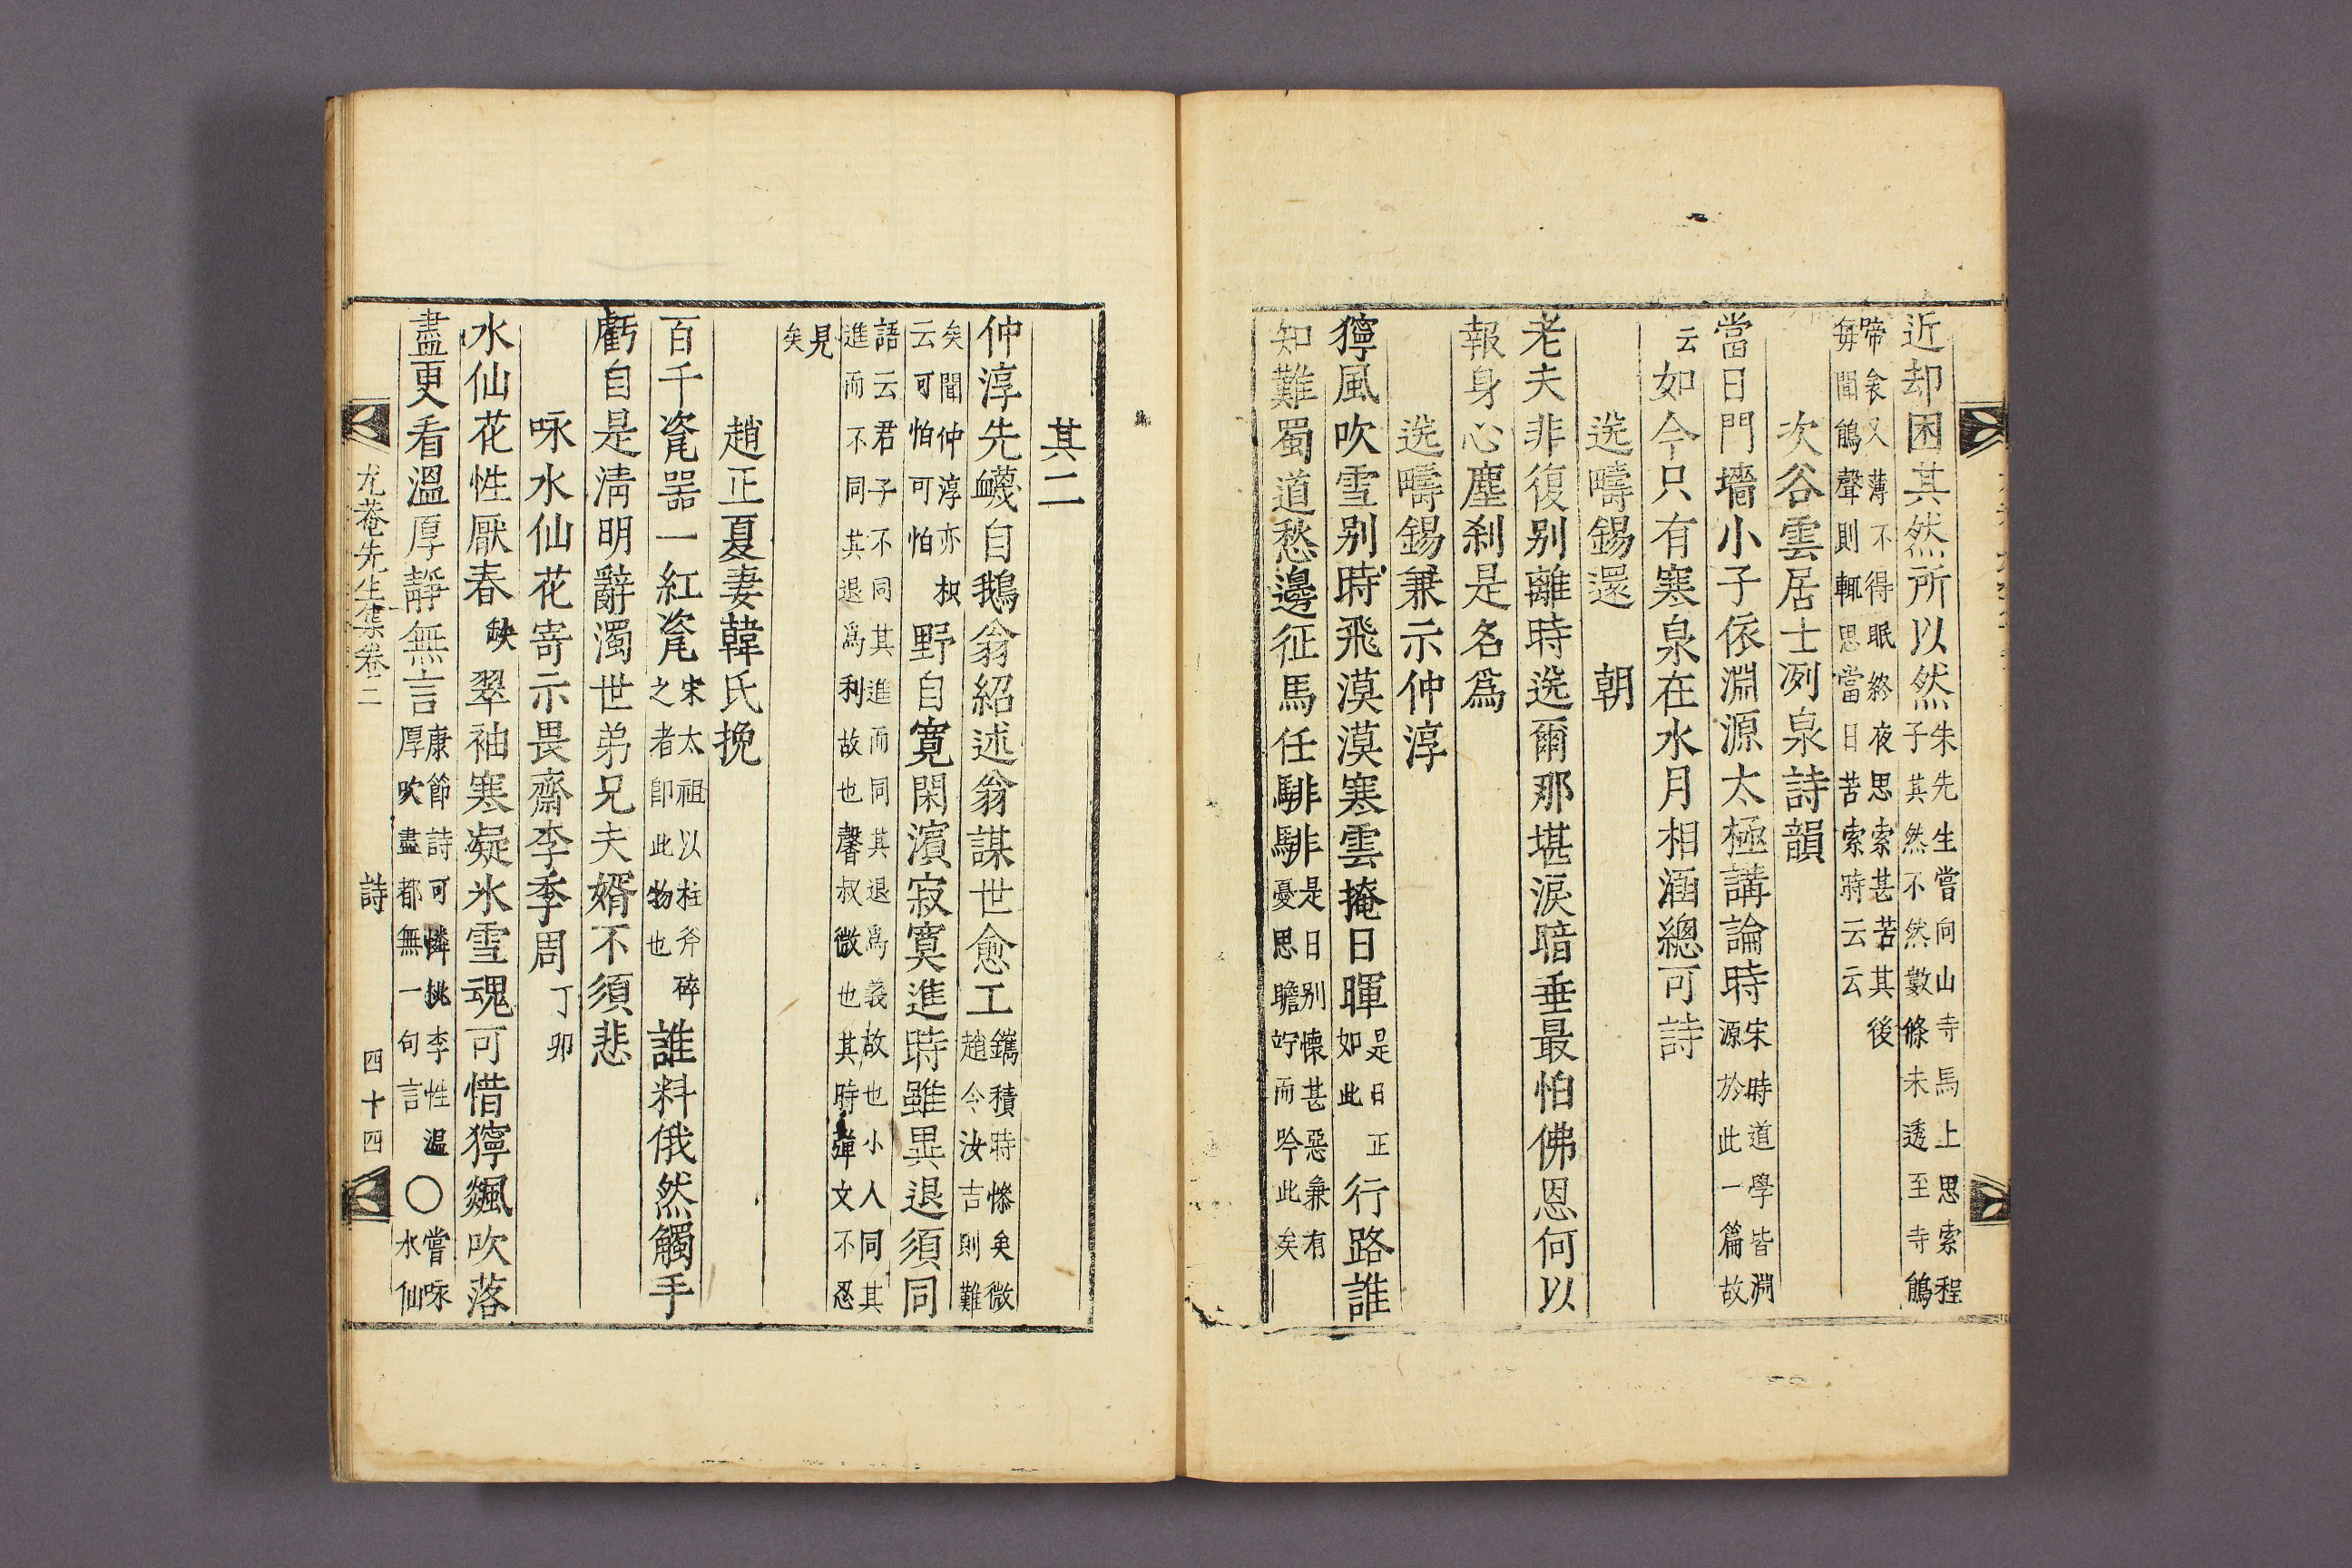 近却困其然所以然朱先生嘗向山寺馬上思索程子其然不然數條未透至寺鵑
啼衾又薄不得眠終夜思索甚苦其後每聞鵑聲則輒思當日苦索時云云
次谷雲居士冽泉詩韻
當日門墻小子依淵源太極講論時宋時道學皆淵源於此一篇故
云如今只有寒泉在水月相涵總可詩
选疇錫還朝
老夫非復別離時选爾那堪淚暗垂最怕佛恩何以
報身心塵刹是名爲
选疇錫兼示仲淳
獰風吹雪別時飛漠漠寒雲掩日暉是日正如此行路誰
知難蜀道愁邊征馬任騑騑是日別懷甚惡兼有憂思瞻竚而吟此矣
其二
仲淳先衊自鵝翁紹述翁謀世愈工鐫積時慘矣微趙今汝吉則難
矣聞仲淳亦枳云可怕可怕野自寬閑濱寂寞進時雖異退須同
語云君子不同其進而同其退爲義故也小人同其進而不同其退爲利故也馨叔微也其時彈文不忍
見矣
趙正夏妻韓氏挽
百千瓷器一紅瓷宋太祖以柱斧碎之者卽此物也誰料俄然觸手
虧自是淸明辭濁世弟兄夫婿不須悲
咏水仙花寄示畏齋李季周丁卯
水仙花性厭春缺翠袖寒凝氷雪魂可惜獰颷吹落
盡更看溫厚靜無言康節詩可憐桃李性溫厚吹盡都無一句言〇嘗咏水仙
尤菴先生集卷二 詩 四十四